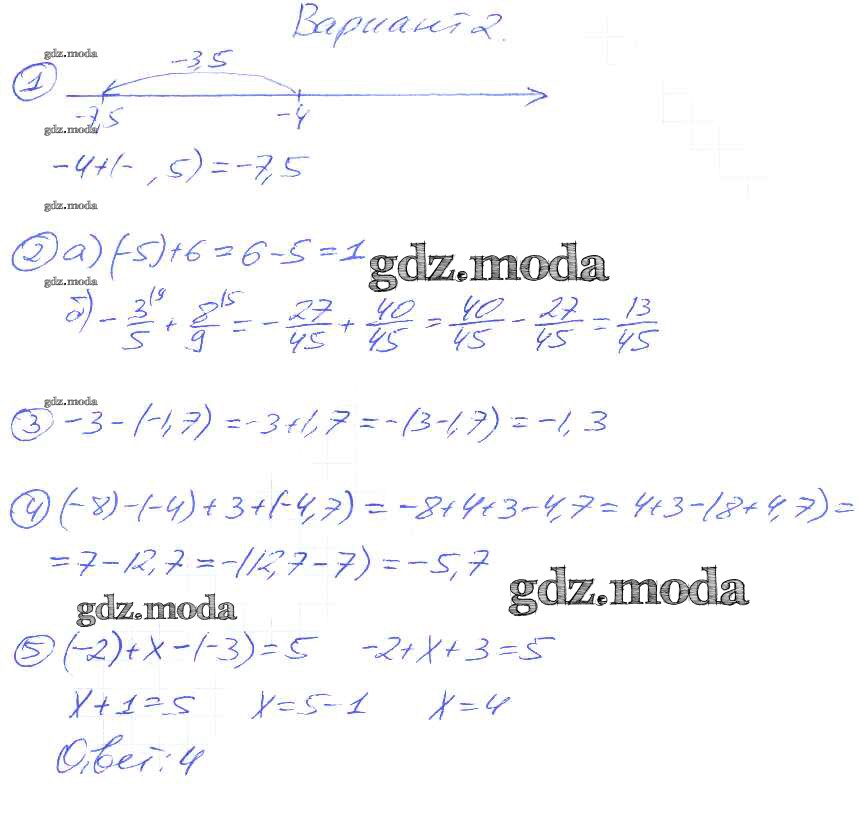 Вариант 2.
gdz.moda
-3,5
1
-7,5 -4
gdz.moda
-4+(- , 5)=-7,5
gdz.moda
2 а) (-5)+6=6-5=1
gdz.moda
gdz.moda
б) -3/5^{19} + 8/9^{15} = -27/45 + 40/45 = 40/45 - 27/45 = 13/45
gdz.moda
3 -3-(-1,7)=-3+1,7=-(3-1,7)=-1,3
4 (-8)-(-4)+3+(-4,7)=-8+4+3-4,7=4+3-(8+4,7)=
=7-12,7=-(12,7-7)=-5,7
gdz.moda
gdz.moda
5 (-2)+x-(-3)=5 -2+x+3=5
x+1=5 x=5-1 x=4
Ответ: 4